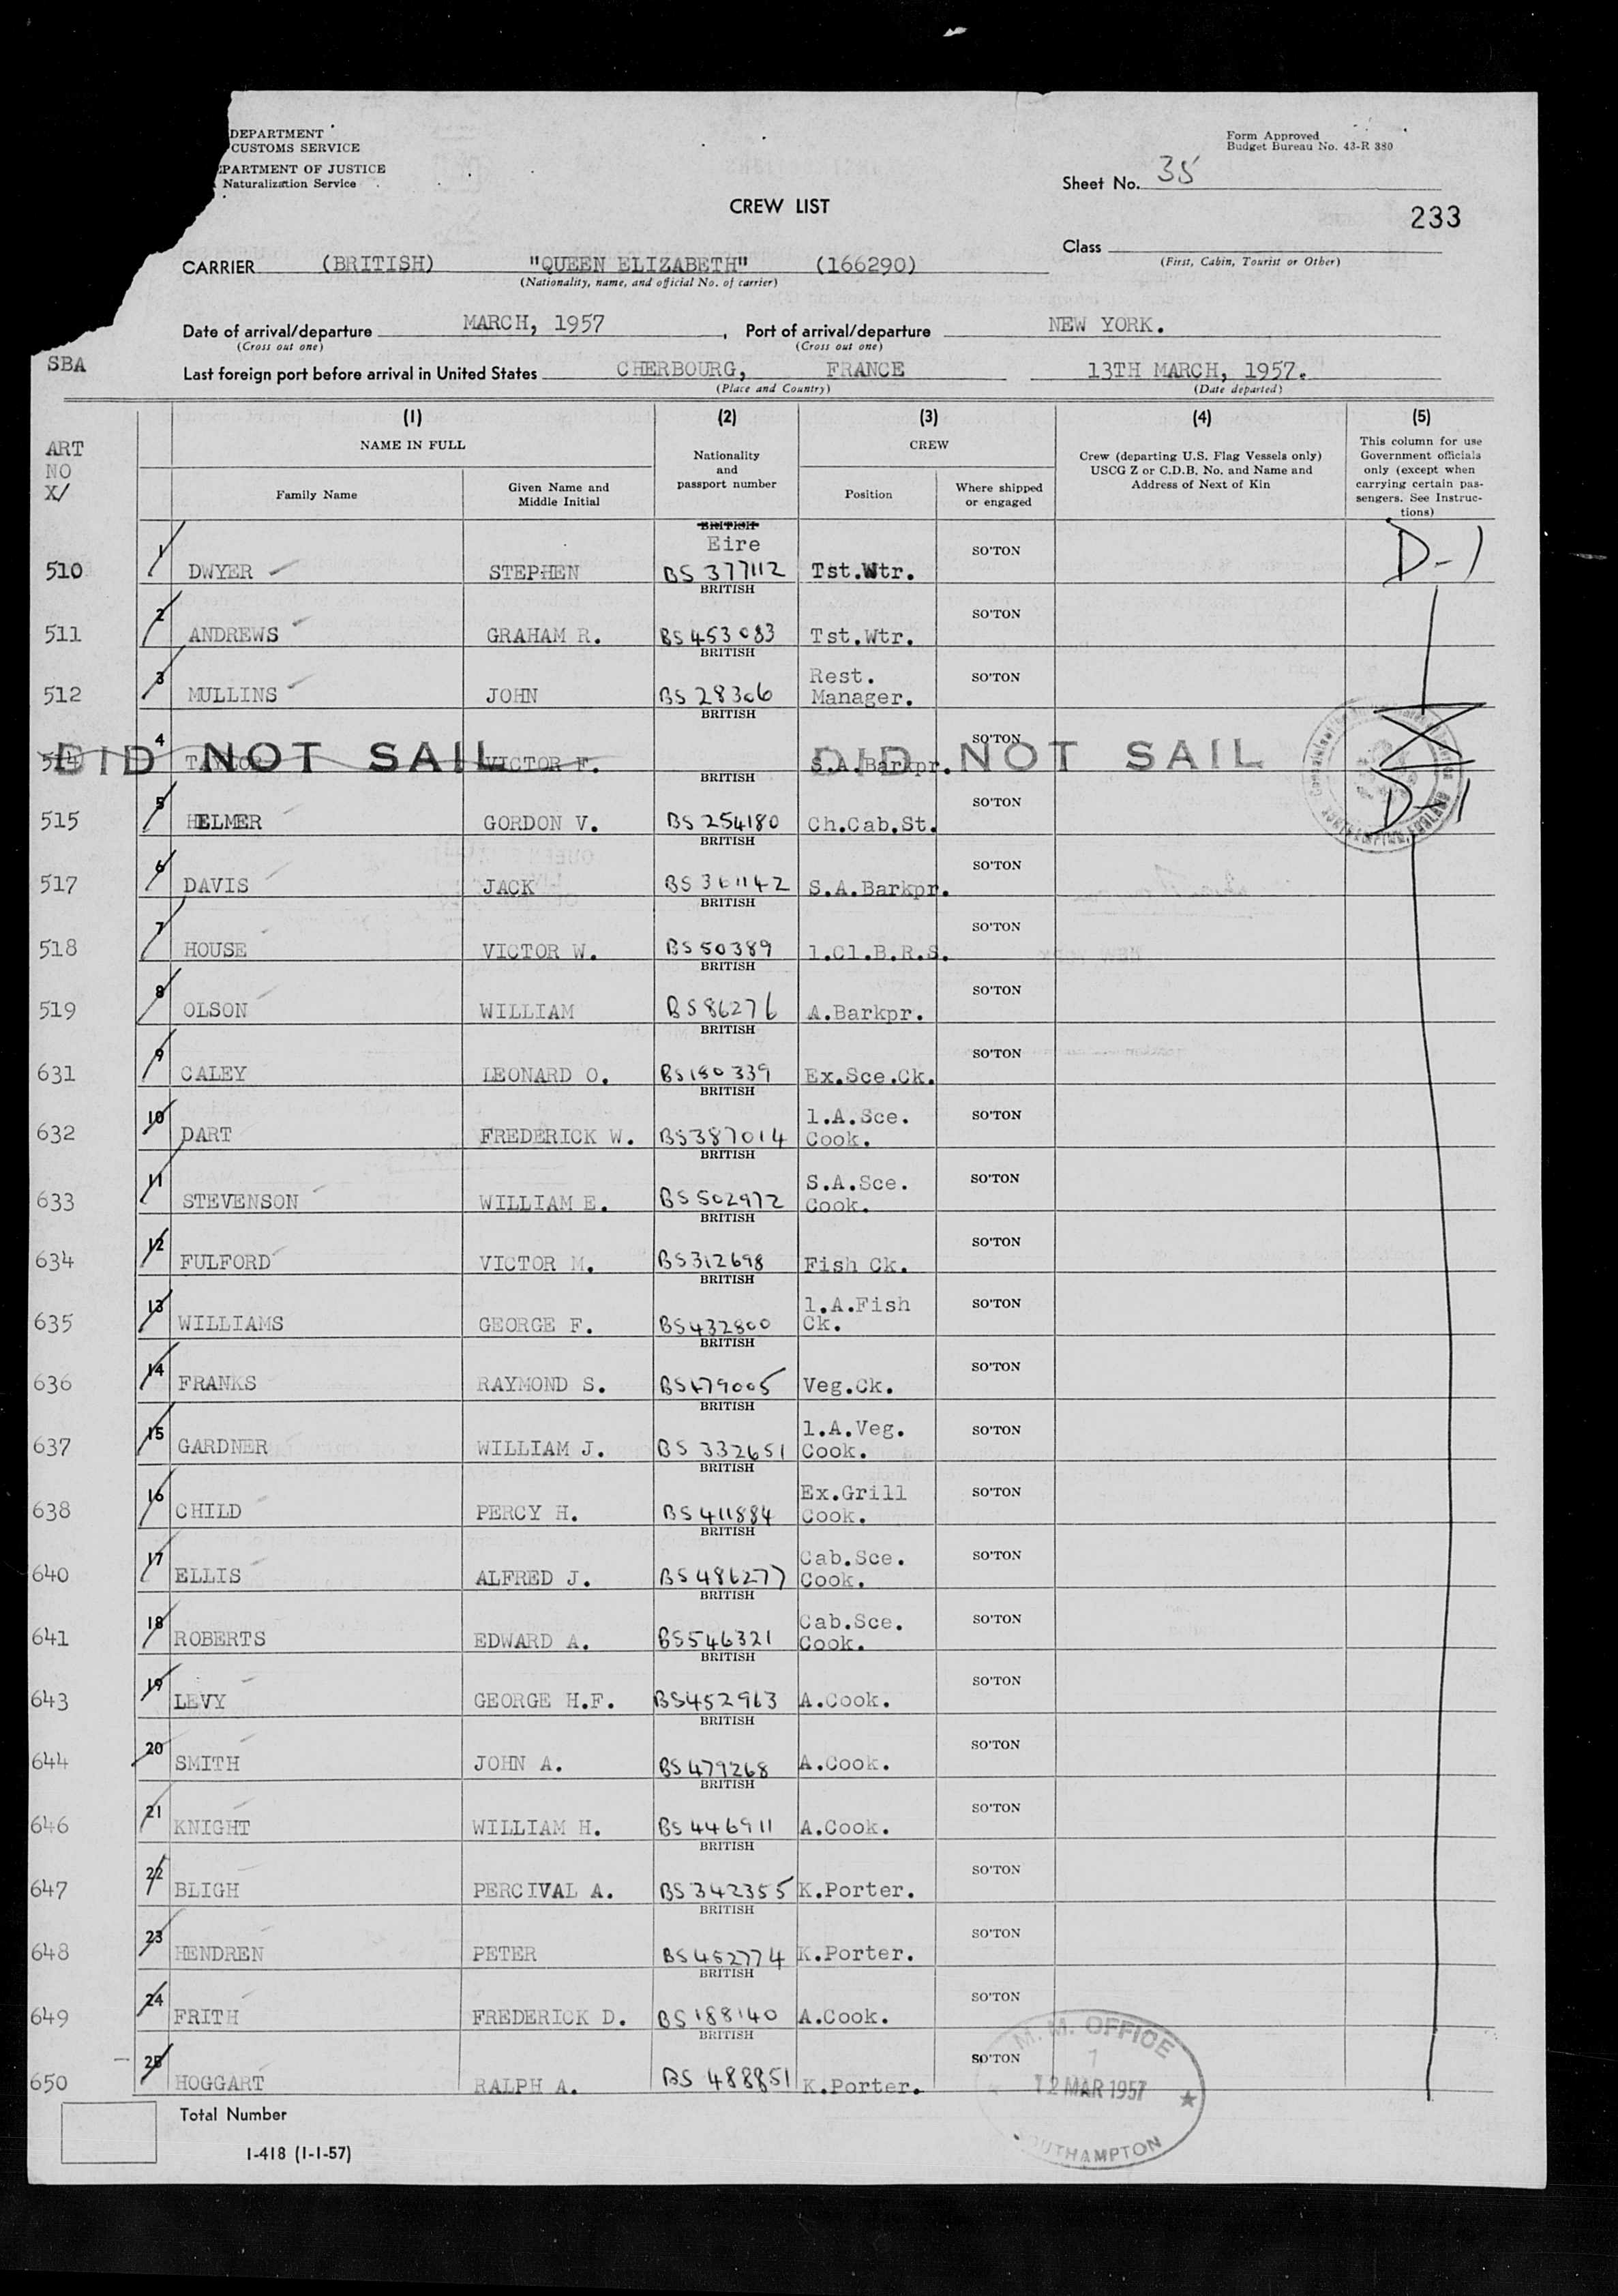 DEPARTMENT
CUSTOMS SERVICE
DEPARTMENT OF JUSTICE
Naturalization Service
Form Approved
Budget Bureau No. 43-R 380
Sheet No. 35
CREW LIST
233
Class
(First, Cabin, Tourist or Other)
CARRIER (BRITISH) "QUEEN ELIZABETH" (166290)
(Nationality, name, and official No. of carrier)
Date of arrival/departure MARCH, 1957, Port of arrival/departure NEW YORK.
(Cross out one) (Cross out one)
SBA
Last foreign port before arrival in United States CHERBOURG, FRANCE 13TH MARCH, 1957.
(Place and Country) (Date departed)
ART NO X/
(1) NAME IN FULL
Family Name
Given Name and Middle Initial
(2) Nationality and passport number
(3) CREW
Position
Where shipped or engaged
(4) Crew (departing U.S. Flag Vessels only) USCG Z or C.D.B. No. and Name and Address of Next of Kin
(5) This column for use Government officials only (except when carrying certain passengers. See Instructions)
510 1 DWYER STEPHEN BRITISH Eire BS 377112 Tst.Wtr. SO'TON D-1
511 2 ANDREWS GRAHAM R. BRITISH BS 453083 Tst.Wtr. SO'TON
512 3 MULLINS JOHN BRITISH BS 28306 Rest. Manager. SO'TON
514 4 VICTOR F. BRITISH S.A.Barkpr. SO'TON
DID NOT SAIL DID NOT SAIL
515 5 HELMER GORDON V. BRITISH BS 254180 Ch.Cab.St. SO'TON D-1
517 6 DAVIS JACK BRITISH BS 361142 S.A.Barkpr. SO'TON
518 7 HOUSE VICTOR W. BRITISH BS 50389 1.Cl.B.R.S. SO'TON
519 8 OLSON WILLIAM BRITISH BS 86276 A.Barkpr. SO'TON
631 9 CALEY LEONARD O. BRITISH BS 180339 Ex.Sce.Ck. SO'TON
632 10 DART FREDERICK W. BRITISH BS387014 1.A.Sce. Cook. SO'TON
633 11 STEVENSON WILLIAM E. BRITISH BS 502972 S.A.Sce. Cook. SO'TON
634 12 FULFORD VICTOR M. BRITISH BS312698 Fish Ck. SO'TON
635 13 WILLIAMS GEORGE F. BRITISH BS432800 1.A.Fish Ck. SO'TON
636 14 FRANKS RAYMOND S. BRITISH BS479005 Veg.Ck. SO'TON
637 15 GARDNER WILLIAM J. BRITISH BS 332651 1.A.Veg. Cook. SO'TON
638 16 CHILD PERCY H. BRITISH BS 411884 Ex.Grill Cook. SO'TON
640 17 ELLIS ALFRED J. BRITISH BS 486277 Cab.Sce. Cook. SO'TON
641 18 ROBERTS EDWARD A. BRITISH BS546321 Cab.Sce. Cook. SO'TON
643 19 LEVY GEORGE H.F. BRITISH BS452963 A.Cook. SO'TON
644 20 SMITH JOHN A. BRITISH BS479268 A.Cook. SO'TON
646 21 KNIGHT WILLIAM H. BRITISH BS 446911 A.Cook. SO'TON
647 22 BLIGH PERCIVAL A. BRITISH BS 342355 K.Porter. SO'TON
648 23 HENDREN PETER BRITISH BS452774 K.Porter. SO'TON
649 24 FRITH FREDERICK D. BRITISH BS 188140 A.Cook. SO'TON
650 25 HOGGART RALPH A. BRITISH BS 488851 K.Porter. SO'TON
M.M. OFFICE
12 MAR 1957
SOUTHAMPTON
Total Number
I-418 (1-1-57)